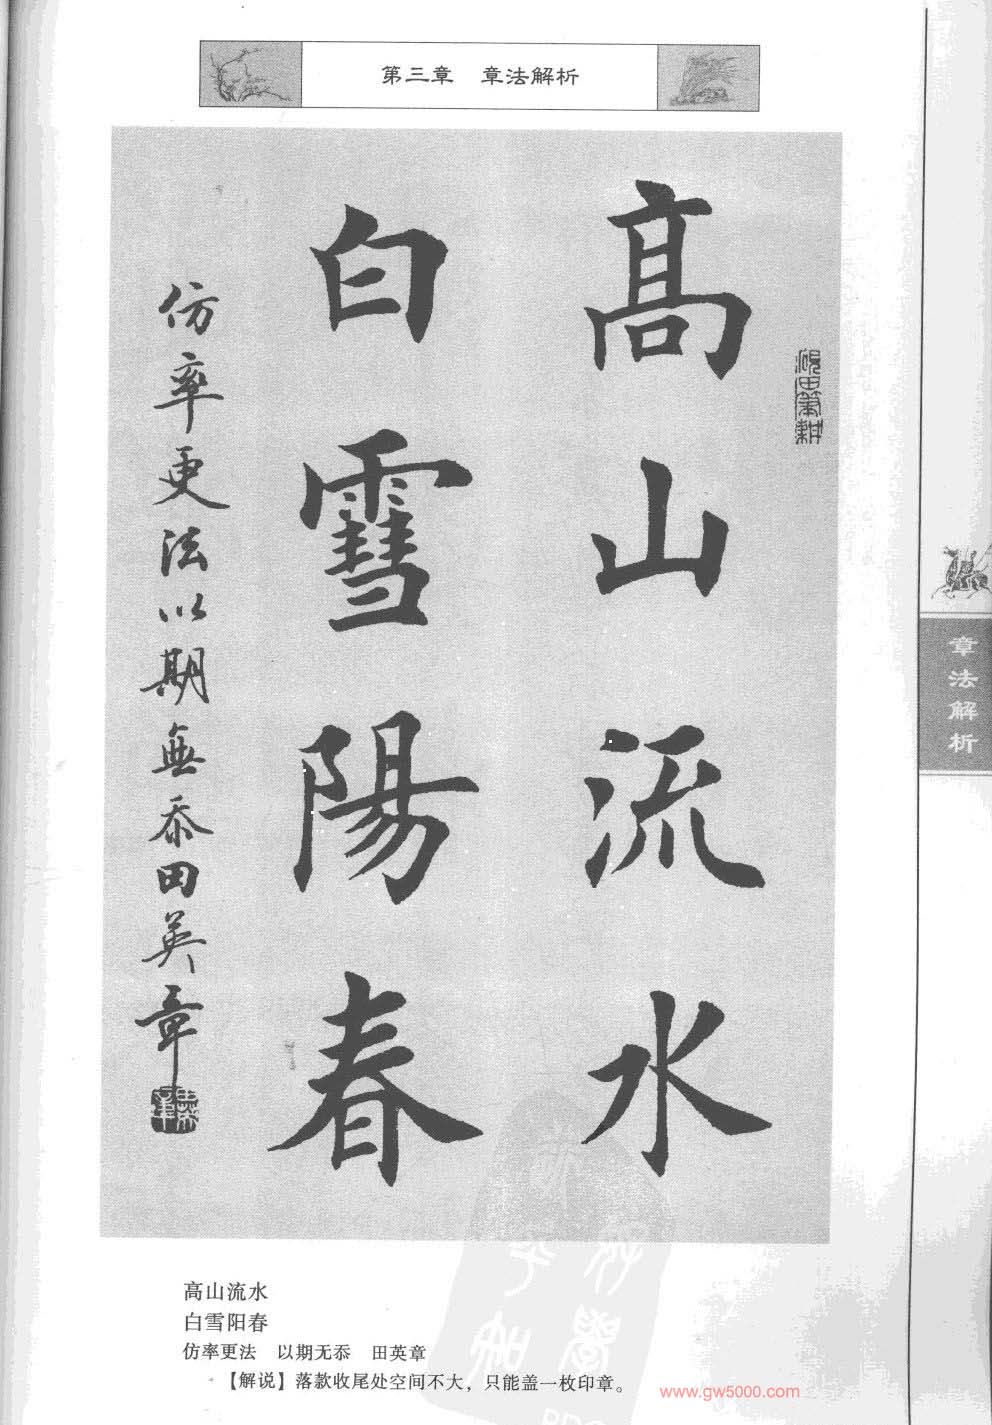 第三章 章法解析
高山流水
白雪陽春
仿率更法以期無忝田英章
硯田筆耕
章法解析
高山流水
白雪阳春
仿率更法 以期无忝 田英章
【解说】落款收尾处空间不大，只能盖一枚印章。
www.gw5000.com